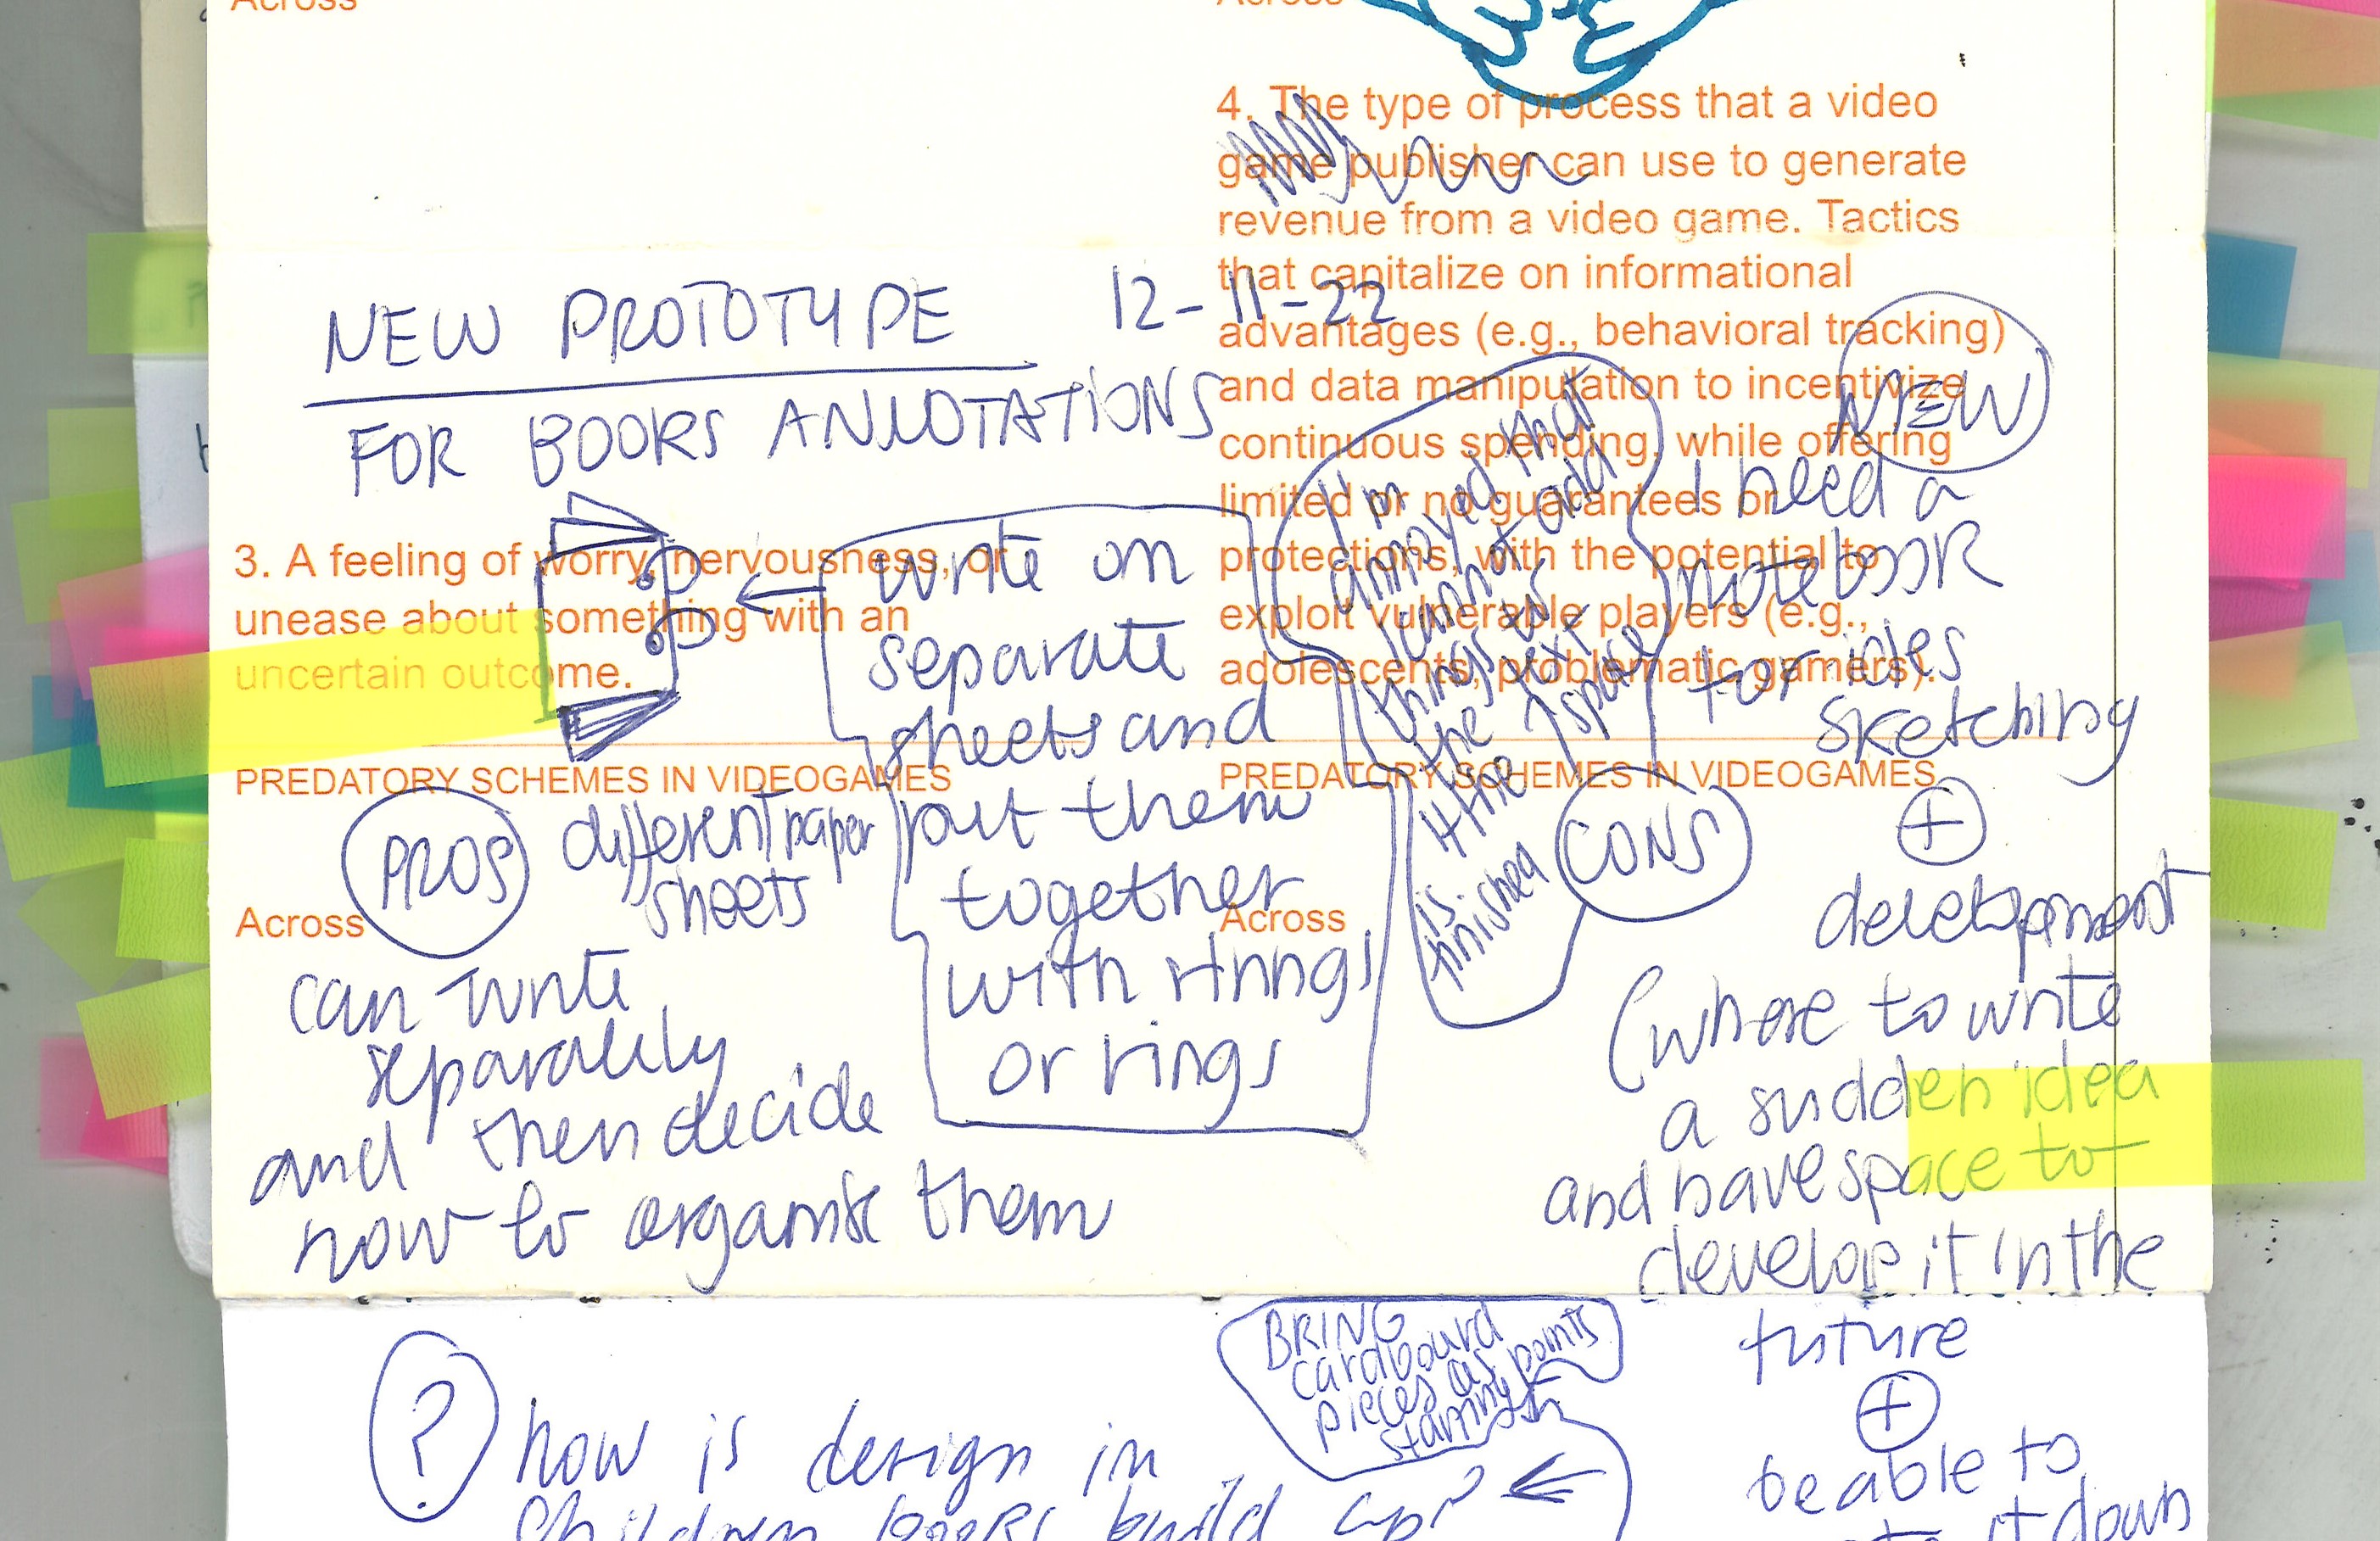 Across
Across
4. The type of process that a video
game publisher can use to generate
revenue from a video game. Tactics
that capitalize on informational
advantages (e.g., behavioral tracking)
and data manipulation to incentivize
continuous spending, while offering
limited or no guarantees or
protections, with the potential to
exploit vulnerable players (e.g.,
adolescents, problematic gamers).
PREDATORY SCHEMES IN VIDEOGAMES
Across
3. A feeling of worry, nervousness, or
unease about something with an
uncertain outcome.
PREDATORY SCHEMES IN VIDEOGAMES
Across
NEW PROTOTYPE 12-11-22
FOR BOOKS ANNOTATIONS
write on
separate
sheets and
put them
together
with
or rings
PROS
different paper
sheets
can write
separately
and then decide
how to organise them
CONS
I'm
annoyed that
I cannot add
things to
the text
if the space
is
finished
NEW
I need a
notebook
for
sketching
+
development
(where to write
a sudden idea
and have space to
develop it in the
future
+
be able to
it down
BRING
cardboard
pieces as points
?
how is design in
build up?